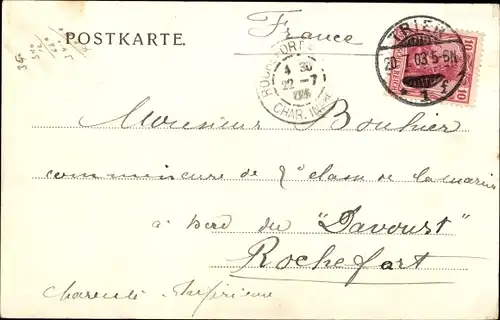 France
POSTKARTE.
TRIER
20 7 03 5-6N
1 f
10 10
ROCHEFORT
4 30
22 -7
CHAR. INFRE
Monsieur Bouhier
de 2e classe de la marine
à bord du "Davoust"
Rochefort
Charente Inférieure